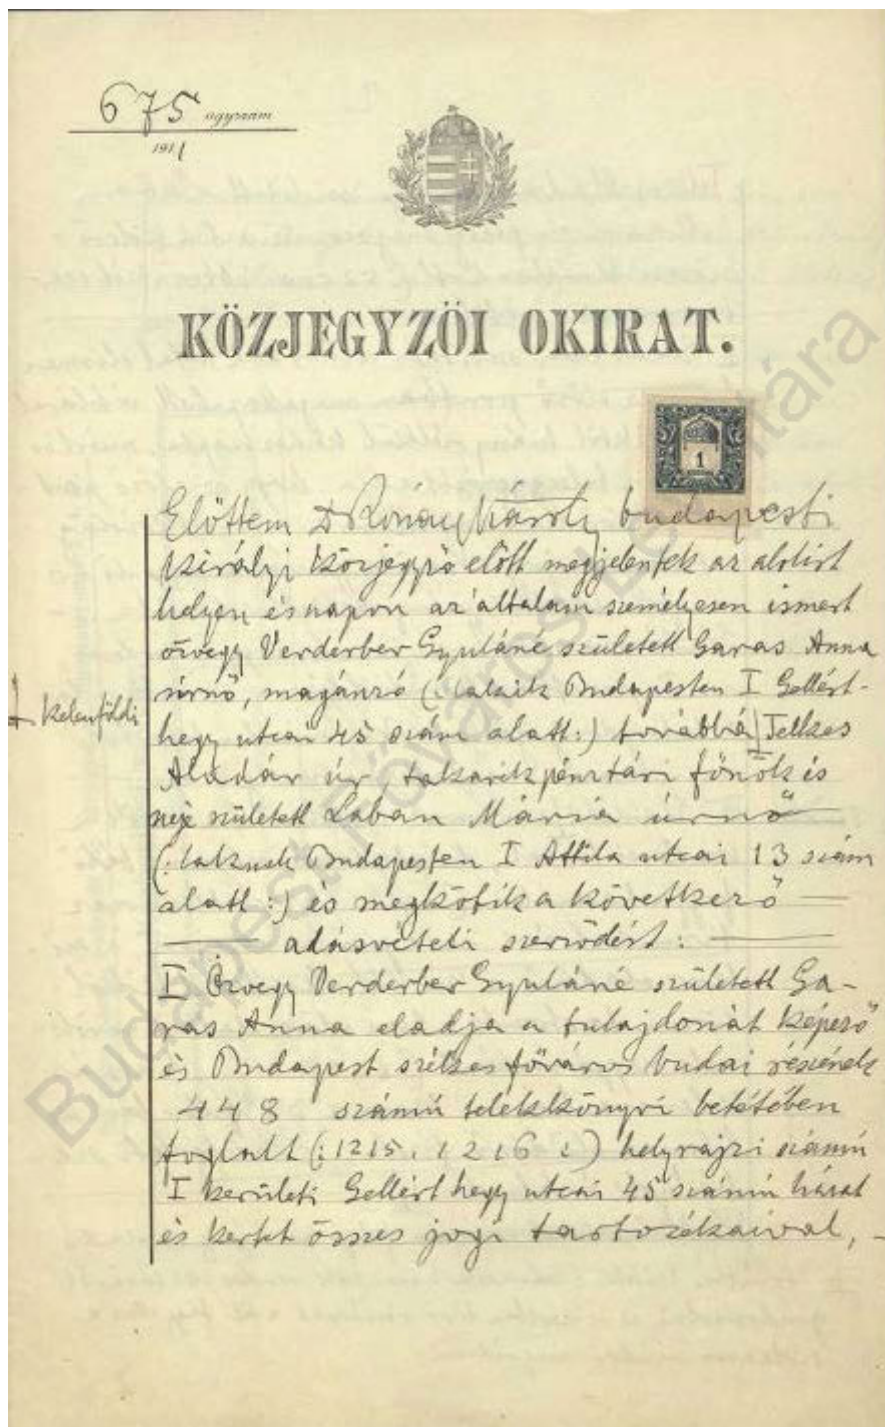 675 ügyszám
1911
KÖZJEGYZÖI OKIRAT.
1
Előttem Dr Rónay Károly budapesti
királyi közjegyző előtt megjelentek az alolirt
helyen és napon az általam személyesen ismert
özvegy Verderber Gyuláné született Garas Anna
úrnő, magánzó (: lakik Budapesten I Gellért-
hegy utcai 45 szám alatt :) továbbá Telkes
kelenföldi
Aladár úr, takarékpénztári főnök és
neje született Laban Mária úrnő
(: laknak Budapesten I Attila utcai 13 szám
alatt :) és megkötik a következő
adásvételi szerződést :
I Özvegy Verderber Gyuláné született Ga-
ras Anna eladja a tulajdonát képező
és Budapest székes főváros budai részének
448 számú telekkönyvi betétében
foglalt (: 1215, 1216 :) helyrajzi számú
I kerületi Gellért hegy utcai 45 számú házat
és kertet összes jogi tartozékaival,
Budapest Főváros Levéltára